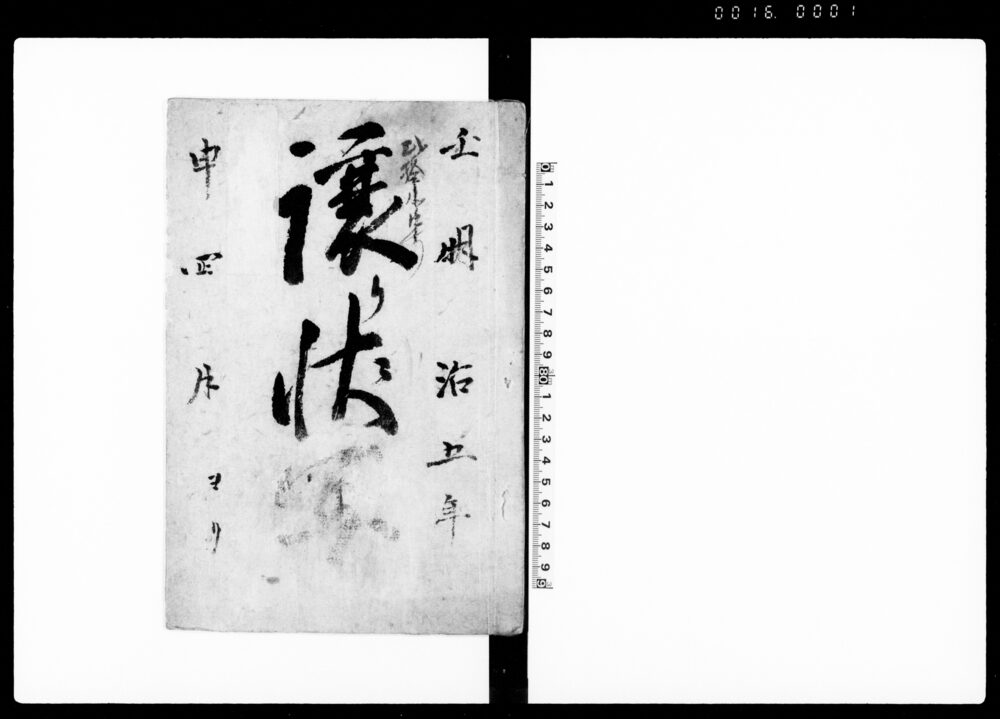 0016. 0001
明治五年
譲り状
申四月ヨリ
0 1 2 3 4 5 6 7 8 9 80 1 2 3 4 5 6 7 8 9